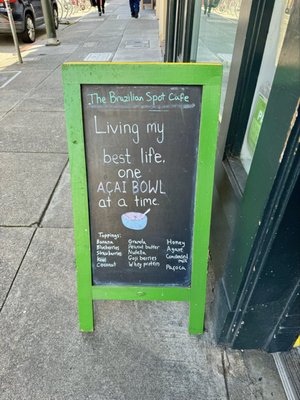 The Brazilian Spot Cafe
Living my
best life,
one
AÇAI BOWL
at a time.
Toppings:
Banana
Blueberries
Strawberries
Kiwi
Coconut
Granola
Peanut butter
Nutella
Goji berries
Whey protein
Honey
Agave
Condensed
milk
Paçoca